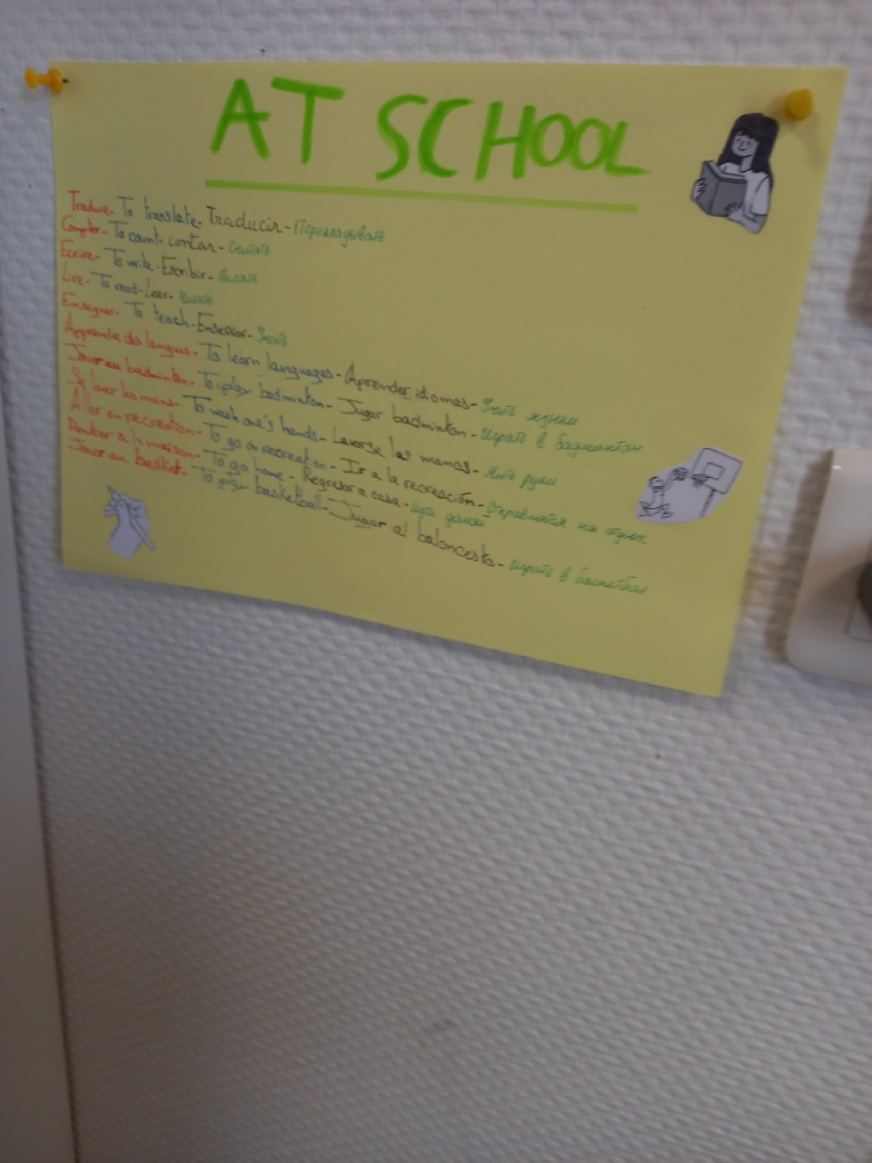 AT SCHOOL
Traduire- To translate- Traducir- Перекладывать
Compter- To count- contar- Считать
Ecrire- To write- Escribir- Писать
Lire- To read- Leer-
Enseigner- To teach- Enseñar- Учить
Apprendre des langues- To learn languages- Aprender idiomas- Учить языки
Jouer au badminton- To play badminton- Jugar badminton- Играть в бадминтон
Se laver les mains- To wash one's hands- Lavarse las manos- Мыть руки
Aller en recreation- To go on recreation- Ir a la recreación- Отправляться на отдых
Rentrer a la maison- To go home- Regresar a casa- идти домой
Jouer au basket- To play basketball- Jugar al baloncesto- играть в баскетбол